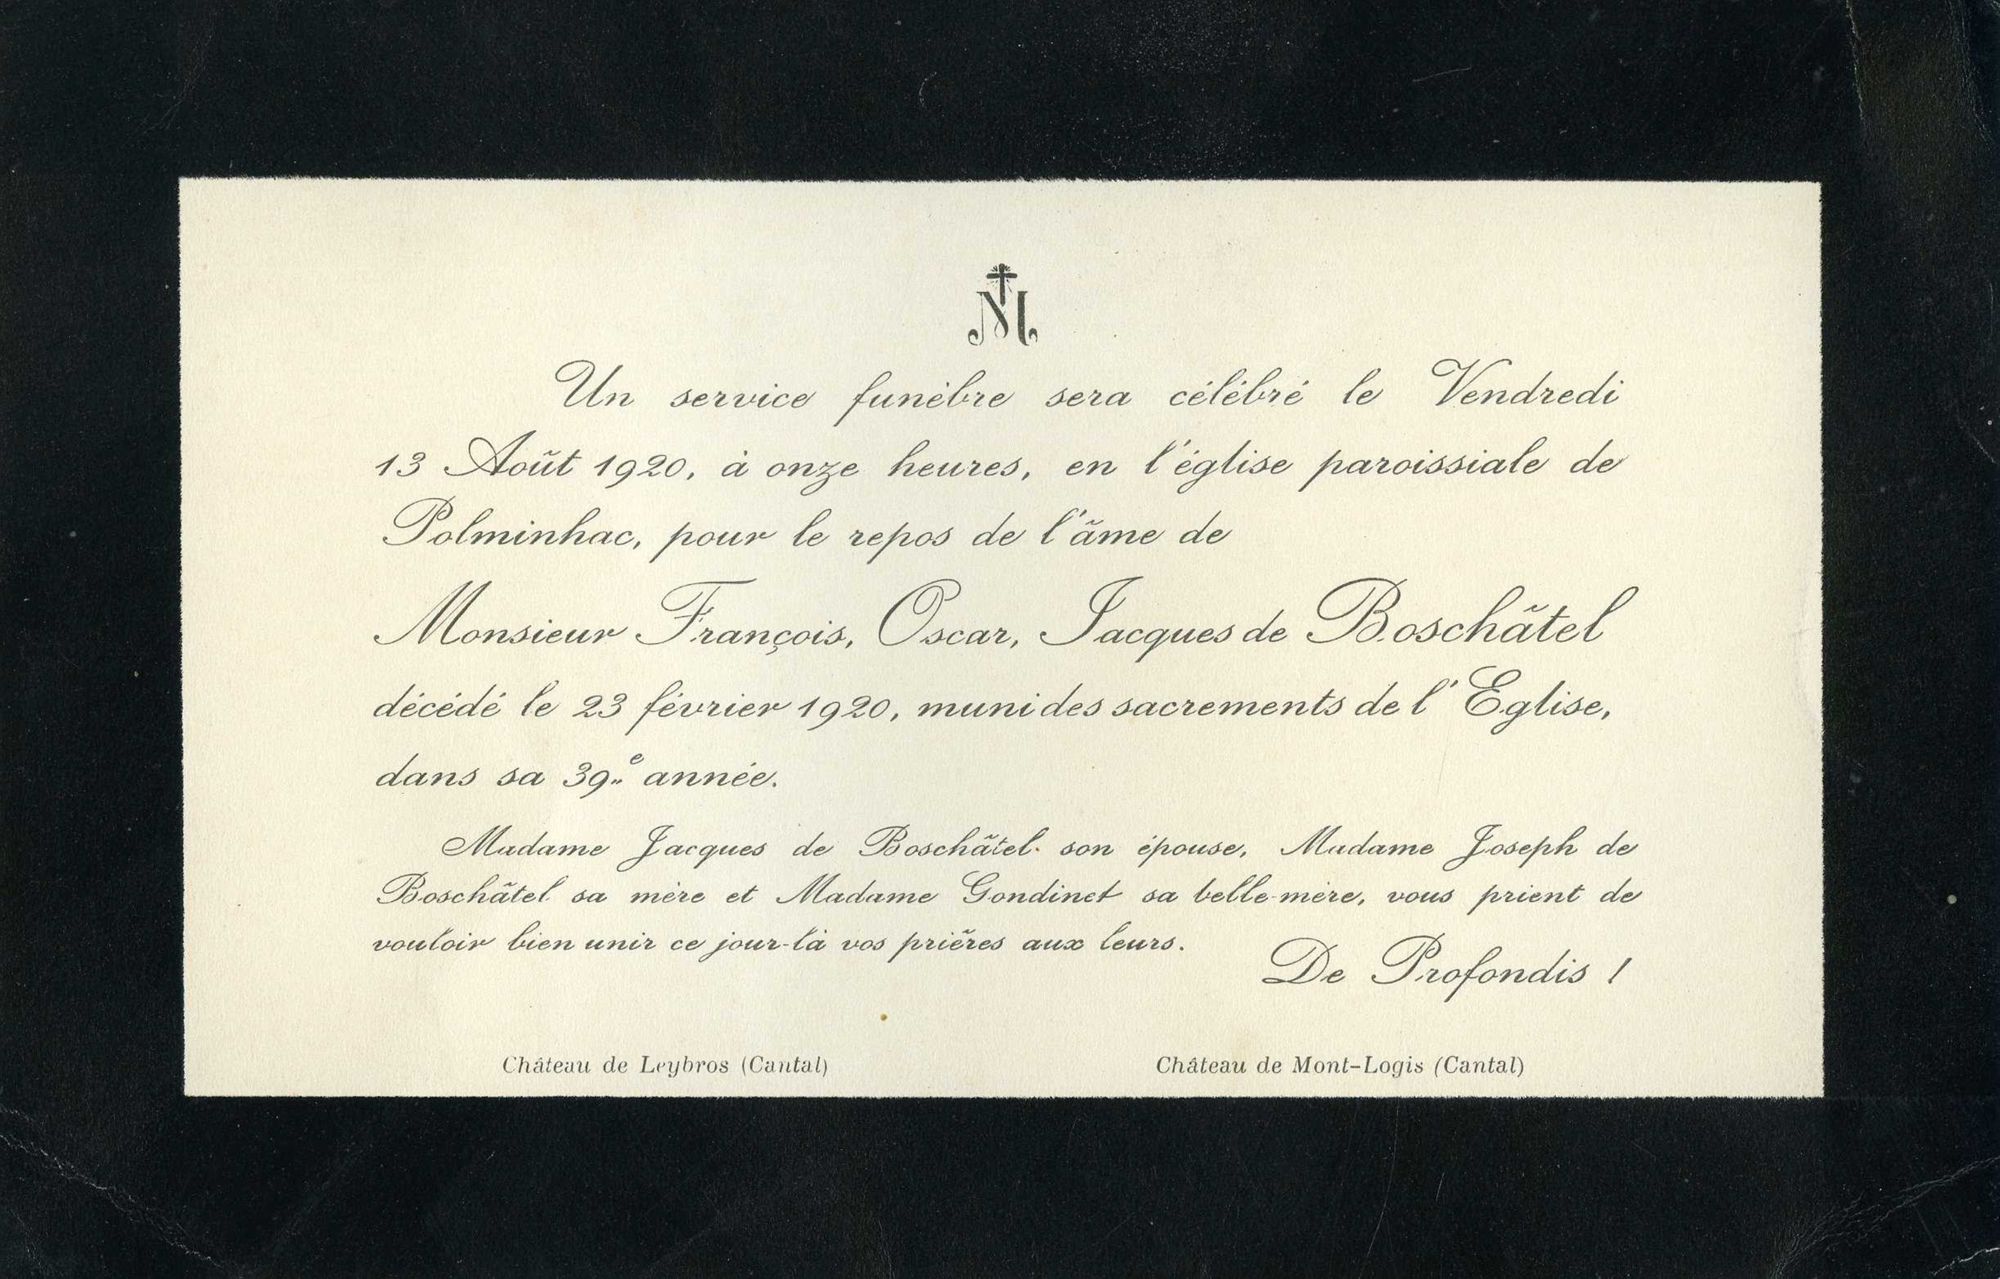 M
Un service funèbre sera célébré le Vendredi
13 Août 1920, à onze heures, en l'église paroissiale de
Polminhac, pour le repos de l'âme de
Monsieur François, Oscar, Jacques de Boschâtel
décédé le 23 février 1920, muni des sacrements de l'Eglise,
dans sa 39e année.
Madame Jacques de Boschâtel son épouse, Madame Joseph de
Boschâtel sa mère et Madame Gondinet sa belle-mère, vous prient de
vouloir bien unir ce jour-là vos prières aux leurs.
De Profondis !
Château de Leybros (Cantal)
Château de Mont-Logis (Cantal)